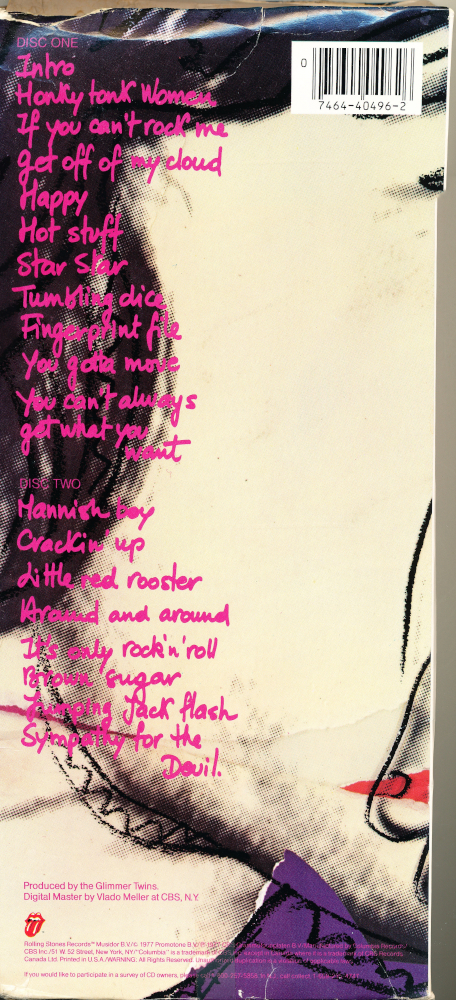 DISC ONE
Intro
Honky tonk Women
If you can't rock me
get off of my cloud
Happy
Hot stuff
Star Star
Tumbling dice
Fingerprint file
You gotta move
You can't always
get what you
want
DISC TWO
Mannish boy
Crackin' up
Little red rooster
Around and around
It's only rock'n'roll
Brown sugar
Jumping Jack flash
Sympathy for the
Devil.
0
7464-40496-2
Produced by the Glimmer Twins.
Digital Master by Vlado Meller at CBS, N.Y.
Rolling Stones Records™ Musidor B.V./© 1977 Promotone B.V./℗ 1977
CBS Inc./51 W. 52 Street, New York, NY/"Columbia" is a trademark
Canada Ltd. Printed in U.S.A./WARNING: All Rights Reserved.
If you would like to participate in a survey of CD owners, please